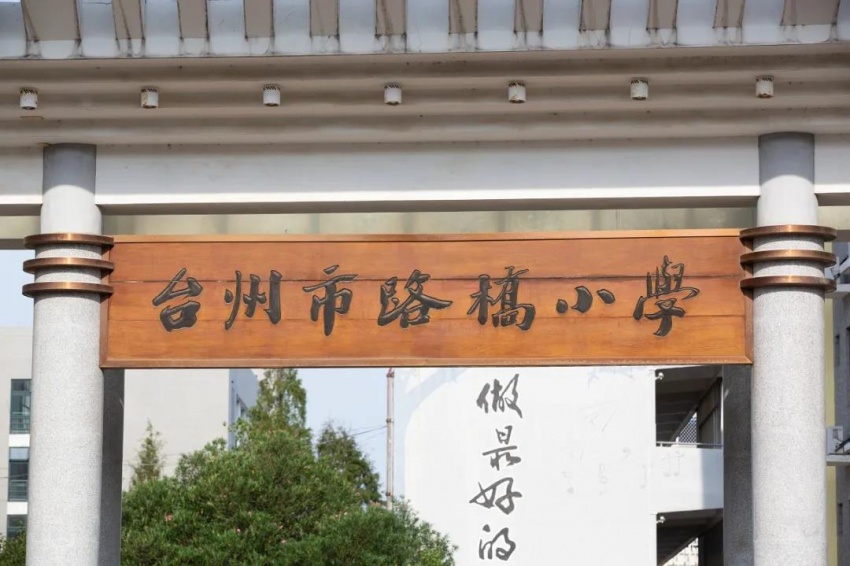 台州市路橋小學
做最好的